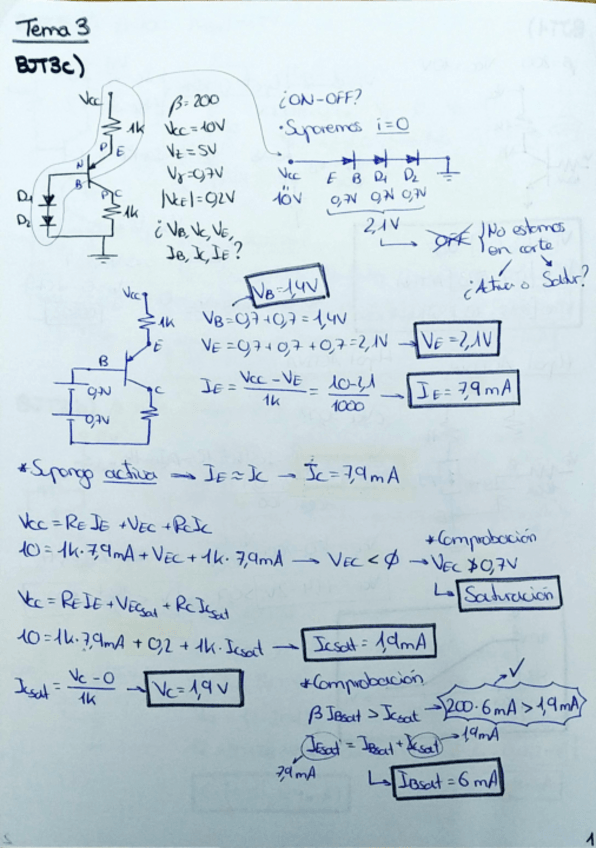 Tema 3
BJT3c)
Vcc
1k
P E
N
B
P C
D1
D2
1k
β=200
Vcc=10V
Vz=5V
Vγ=0,7V
|VCE|=0,2V
¿VB,VC,VE,
IB,IC,IE?
¿ON-OFF?
·Suponemos i=0
Vcc E B D1 D2
10V 0,7V 0,7V 0,7V
2,1V
OFF
No estamos
en corte
¿Activa o Satur?
Vcc
1k
E
B
C
0,7V
0,7V
VB=1,4V
VB=0,7+0,7=1,4V
VE=0,7+0,7+0,7=2,1V → VE=2,1V
IE = Vcc-VE / 1k = 10-2,1 / 1000 → IE=7,9mA
*Supongo activa → IE≈IC → IC=7,9mA
Vcc=REIE+VEC+RCIC
10=1k·7,9mA+VEC+1k·7,9mA → VEC<Ø → VEC≯0,7V
*Comprobación
Saturación
Vcc=REIE+VECsat+RCICsat
10=1k·7,9mA+0,2+1k·ICsat → ICsat=1,9mA
ICsat = VC-0 / 1k → VC=1,9V
*Comprobación ✓
βIBsat>ICsat → 200·6mA>1,9mA
IEsat=IBsat+ICsat → 1,9mA
7,9mA
IBsat=6mA
1